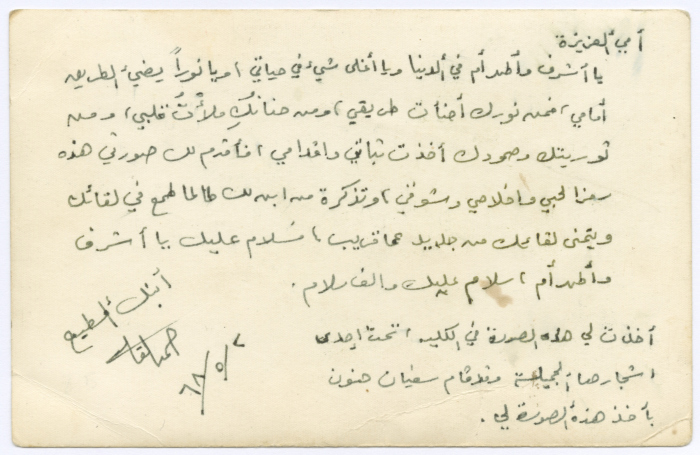 أمي العزيزة
يا أشرف وأطهر أم في الدنيا ويا أغلى شيء في حياتي، ويا نوراً يضيء الطريق
أمامي، فمن نورك أضأت طريقي، ومن حنانكِ ملأتُ قلبي، ومن
ثوريتك وصمودك أخذت ثباتي واقدامي، فأقدم لك صورتي هذه
رمزا لحبي واخلاصي وشوقي، وتذكرة من ابن لك طالما طمع في لقائك
ويتمنى لقاءك من جديد عما قريب، فسلام عليك يا أشرف
وأطهر أم، سلام عليك والف سلام.
أبنك المطيع
٦٨/٥/٢
أخذت لي هذه الصورة في الكلية، تحت إحدى
اشجارها الجميلة وقد قام سفيان جنون
بأخذ هذه الصورة لي.